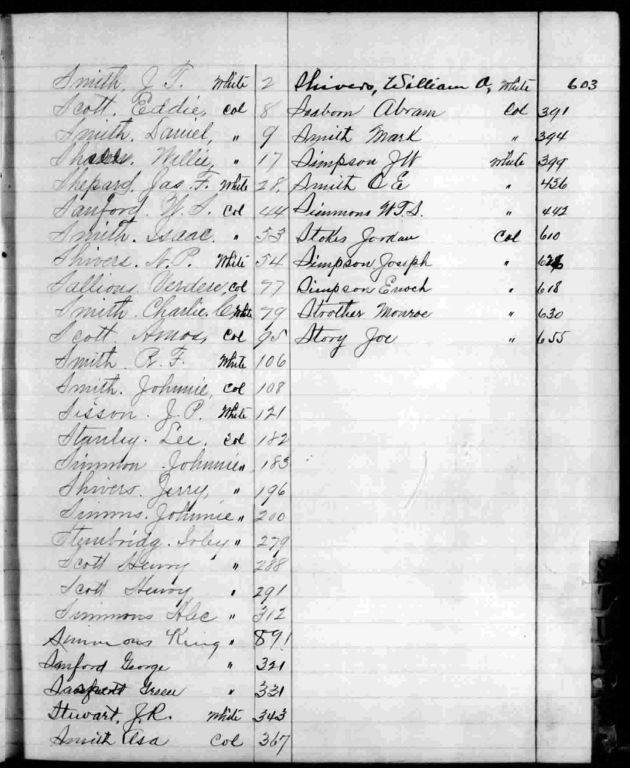 Smith, J. T. White 2
Scott. Eddie, Col 8
Smith. Daniel, " 9
Willie, " 17
Shepard. Jas. F. White 28
Sanford. W. S. Col 44
Smith. Isaac. " 53
Shivers. N. P. White 54
Sallions. Verdew, col 77
Smith. Charlie C White 79
Scott. Amos, Col 95
Smith. R. F. White 106
Smith. Johnnie, Col 108
Sisson. J. P. White 121
Stanley. Lee, Col 182
Simmon. Johnnie " 183
Shivers. Jerry, " 196
Simms. Johnnie " 200
Stembridg. " 279
Scott Henry " 288
Scott Henry " 291
Simmons Alec " 312
Simmons King " 891
Sanford George " 321
Green " 331
Stewart. J. R. White 343
Smith Asa Col 367
Shivers, William A, White 603
Abram Col 391
Smith Mark " 394
Simpson JW White 399
Smith C E " 436
Simmons W. T. S. " 442
Stokes Jordan Col 610
Simpson Joseph "
Simpson Enoch " 618
Strother Monroe " 630
Story Joe " 655